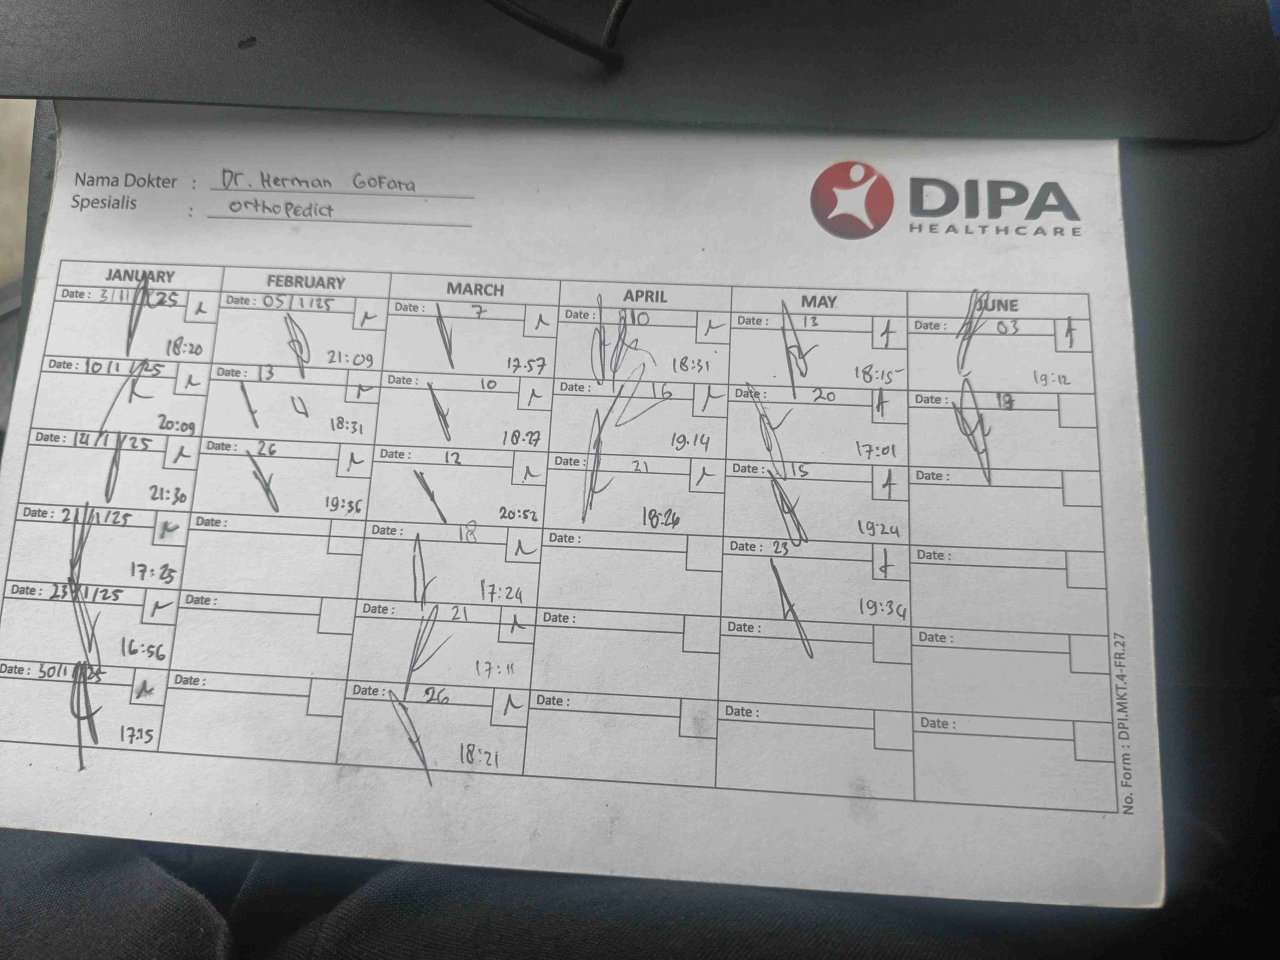 Nama Dokter : Dr. Herman Gofara
Spesialis : Orthopedict
DIPA
HEALTHCARE
JANUARY FEBRUARY MARCH APRIL MAY JUNE
Date : 3/1/25 Date : 05/1/25 Date : 7 Date : 10 Date : 13 Date : 03
18:20 21:09 17.57 18:31 18:15 19:12
Date : 10/1/25 Date : 13 Date : 10 Date : 16 Date : 20 Date :
20:09 18:31 18:27 19.14 17:01
Date : 14/1/25 Date : 26 Date : 12 Date : 21 Date : 15 Date :
21:30 19:36 20:52 18:26 19:24
Date : 21/1/25 Date : Date : 18 Date : Date : 23 Date :
17:25 17:24 19:34
Date : 23/1/25 Date : Date : 21 Date : Date : Date :
16:56 17:11
Date : 30/1/25 Date : Date : 26 Date : Date : Date :
17:15 18:21
No. Form : DPI.MKT.4-FR.27